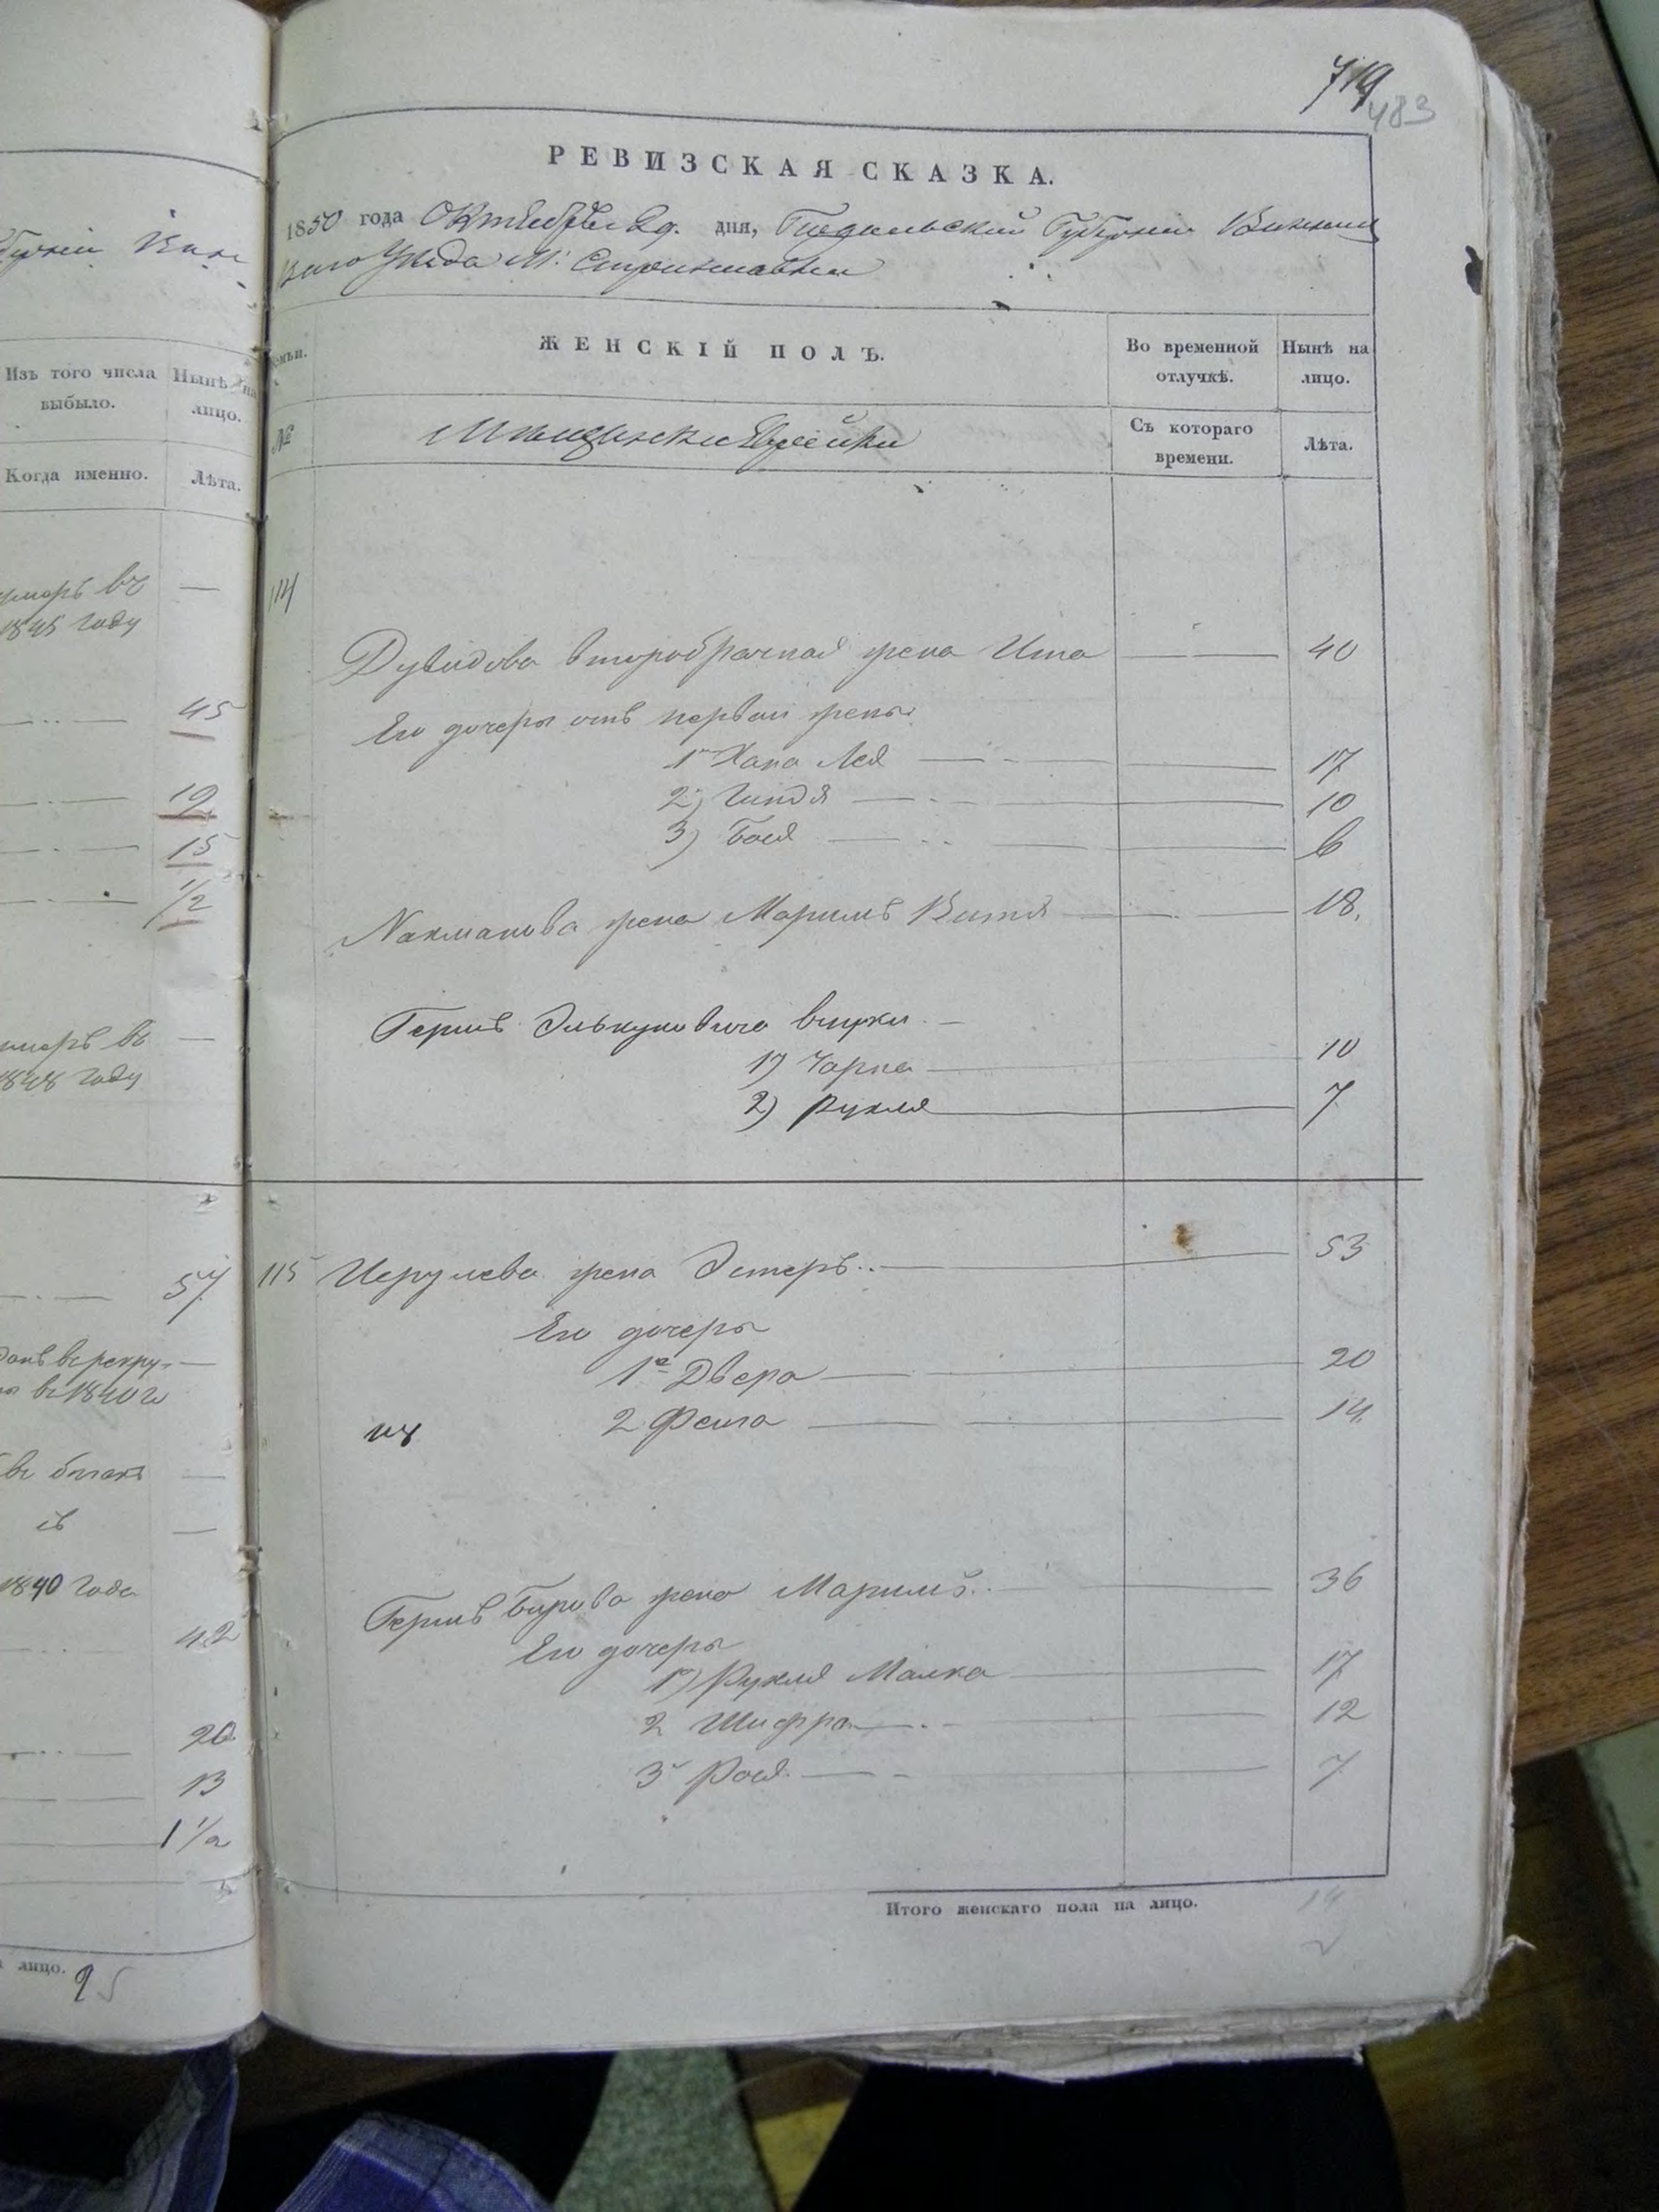 бернiи Вин
Изъ того числа выбыло.
Нынѣ на лицо.
Когда именно.
Лѣта.
умеръ въ —
1845 году
45
19
15
1/2
умеръ въ —
1848 году
57
въ рекру- —
въ 1840 г
въ бѣгахъ —
—
1840 года
42
20
13
1 1/2
лицо. 25
719
483
РЕВИЗСКАЯ СКАЗКА.
1850 года Октября 29. дня, Подольской Губернiи Винниц
каго Уѣзда М: Стрижавки
семьи.
ЖЕНСКІЙ ПОЛЪ.
Во временной отлучкѣ.
Нынѣ на лицо.
№
Мѣщански Еврейки
Съ котораго времени.
Лѣта.
114
Дувидова второбрачная жена Ита 40
Его дочеры отъ первой жены
1я Хана Лея 17
2) Гитля 10
3) Бася 6
Нахманова жена Маримъ Витя 18.
Гершъ Элькуновича внучки
1) Чарна 10
2) Рухля 7
115 Исрулева жена Эстеръ 53
Его дочеры
1я Двера 20
2 Фейга 14.
114
Гершъ Берова жена Маримъ 36
Его дочеры
1) Рухля Малка 17
2 Шифра 12
3 Рося 7
Итого женскаго пола на лицо. 14